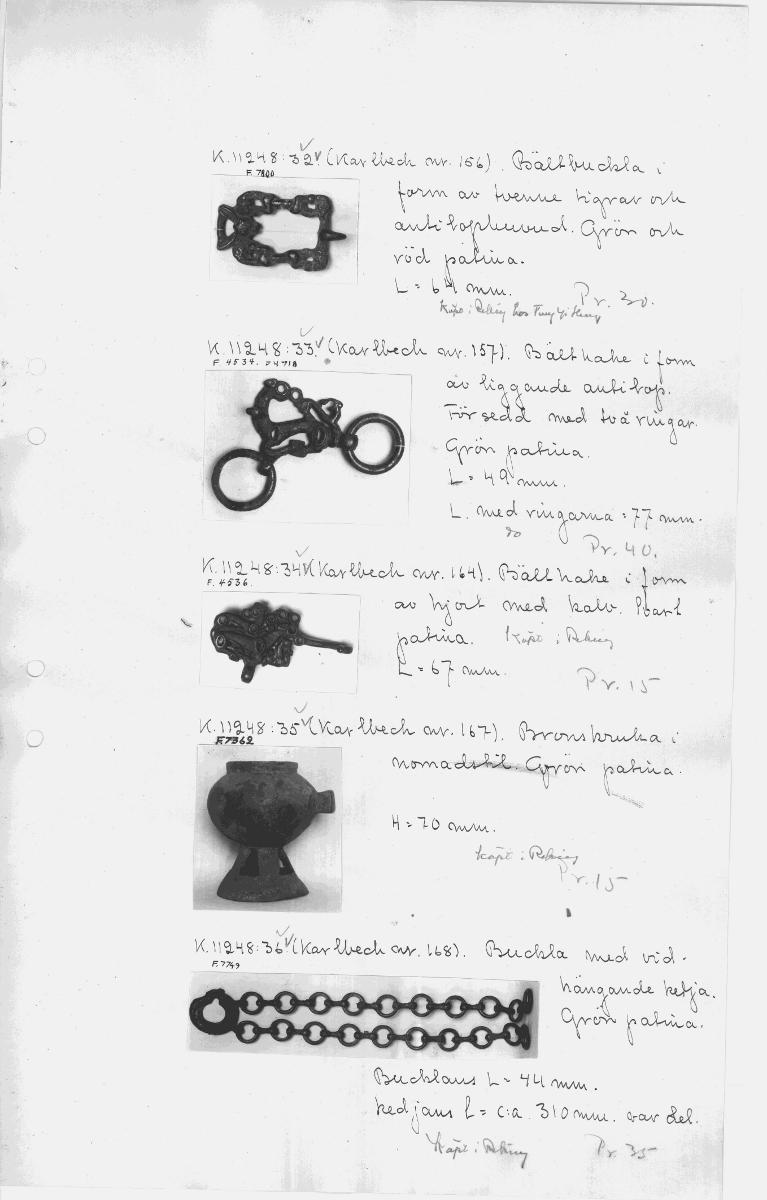 K.11248:32 (Karlbeck nr. 156). Bältbuckla i
F. 7800
form av tvenne tigrar och
antilophuvud. Grön och
röd patina.
L = 64 mm. Pr. 30.
Köpt i Peking hos Tung Yi
K.11248:33 (Karlbeck nr. 157). Bälthake i form
F 4534. F 4718
av liggande antilop.
Försedd med två ringar.
Grön patina.
L = 49 mm.
L. med ringarna = 77 mm.
do Pr. 40.
K.11248:34 (Karlbeck nr. 164). Bälthake i form
F. 4536.
av hjort med kalv. Svart
patina. Köpt i Peking
L = 67 mm. Pr. 15
K.11248:35 (Karlbeck nr. 167). Bronskruka i
F.7362
nomadstil. Grön patina.
H = 70 mm.
Köpt i Peking
Pr. 15
K.11248:36 (Karlbeck nr. 168). Buckla med vid-
F.7749
hängande kedja.
Grön patina.
Bucklans L = 44 mm.
Kedjans L = c:a 310 mm. var del.
Köpt i Peking Pr 35